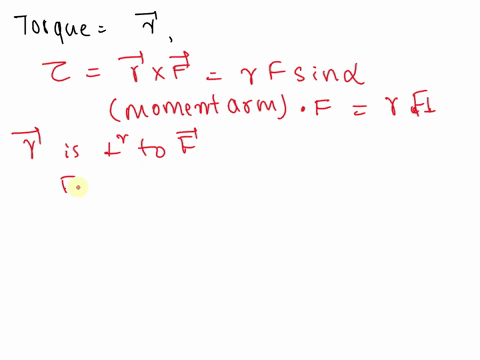 Torque = r⃗,
τ = r⃗ × F⃗ = r F sinα
(moment arm) · F = r F⊥
r⃗ is ⊥ʳ to F⃗
F